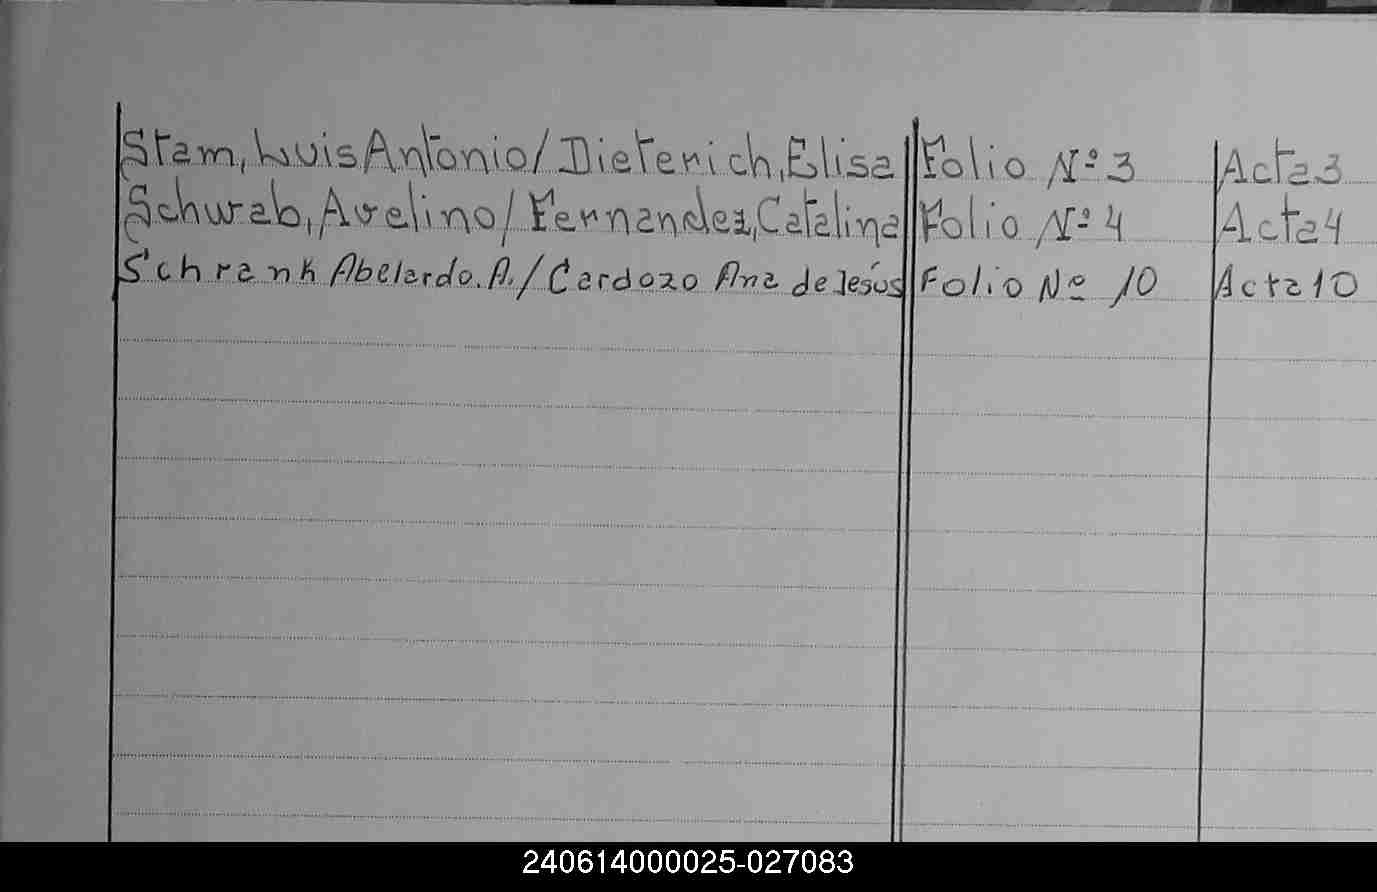 Stam, Luis Antonio/Dieterich, Elisa Folio Nº 3 Acta 3
Schwab, Avelino/Fernandez, Catalina Folio Nº 4 Acta 4
Schrank Abelardo. A./Cardozo Ana de Jesús Folio Nº 10 Acta 10
240614000025-027083